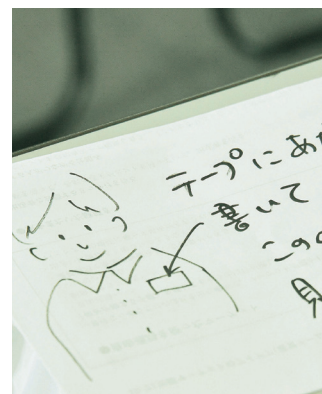 テープにあ
書いて
この
見